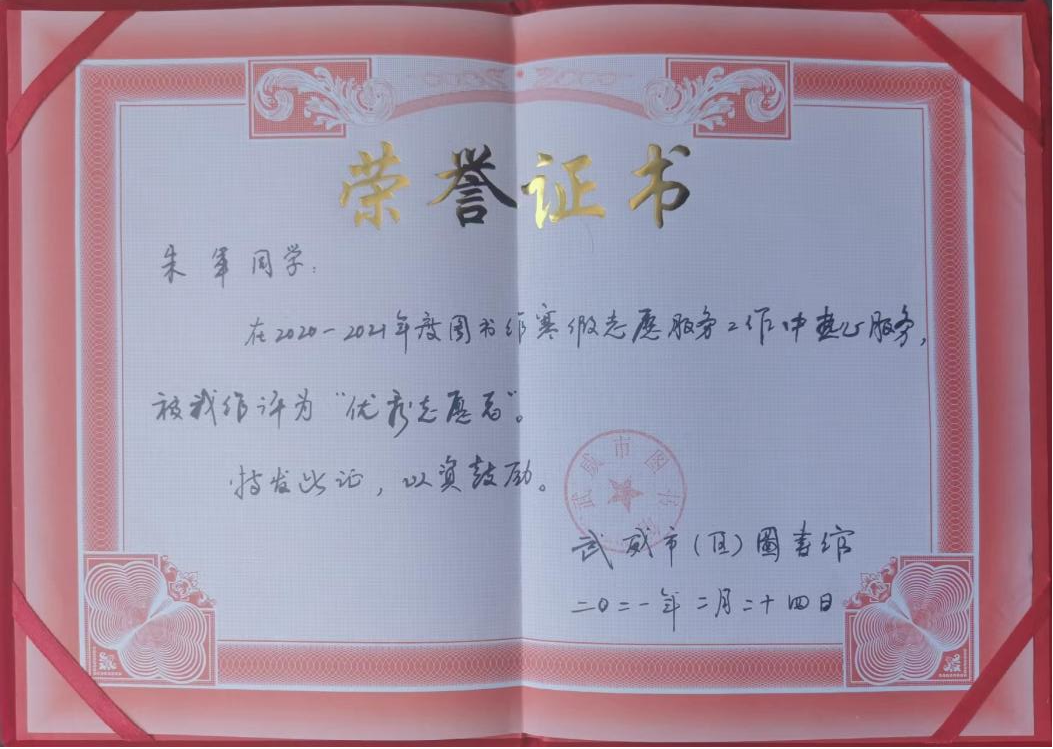 荣誉证书
朱军同学：
在2020-2021年度图书馆寒假志愿服务工作中热心服务，
被我馆评为“优秀志愿者”。
特发此证，以资鼓励。
武威市图书馆
武威市(区)圖書馆
二〇二一年二月二十四日